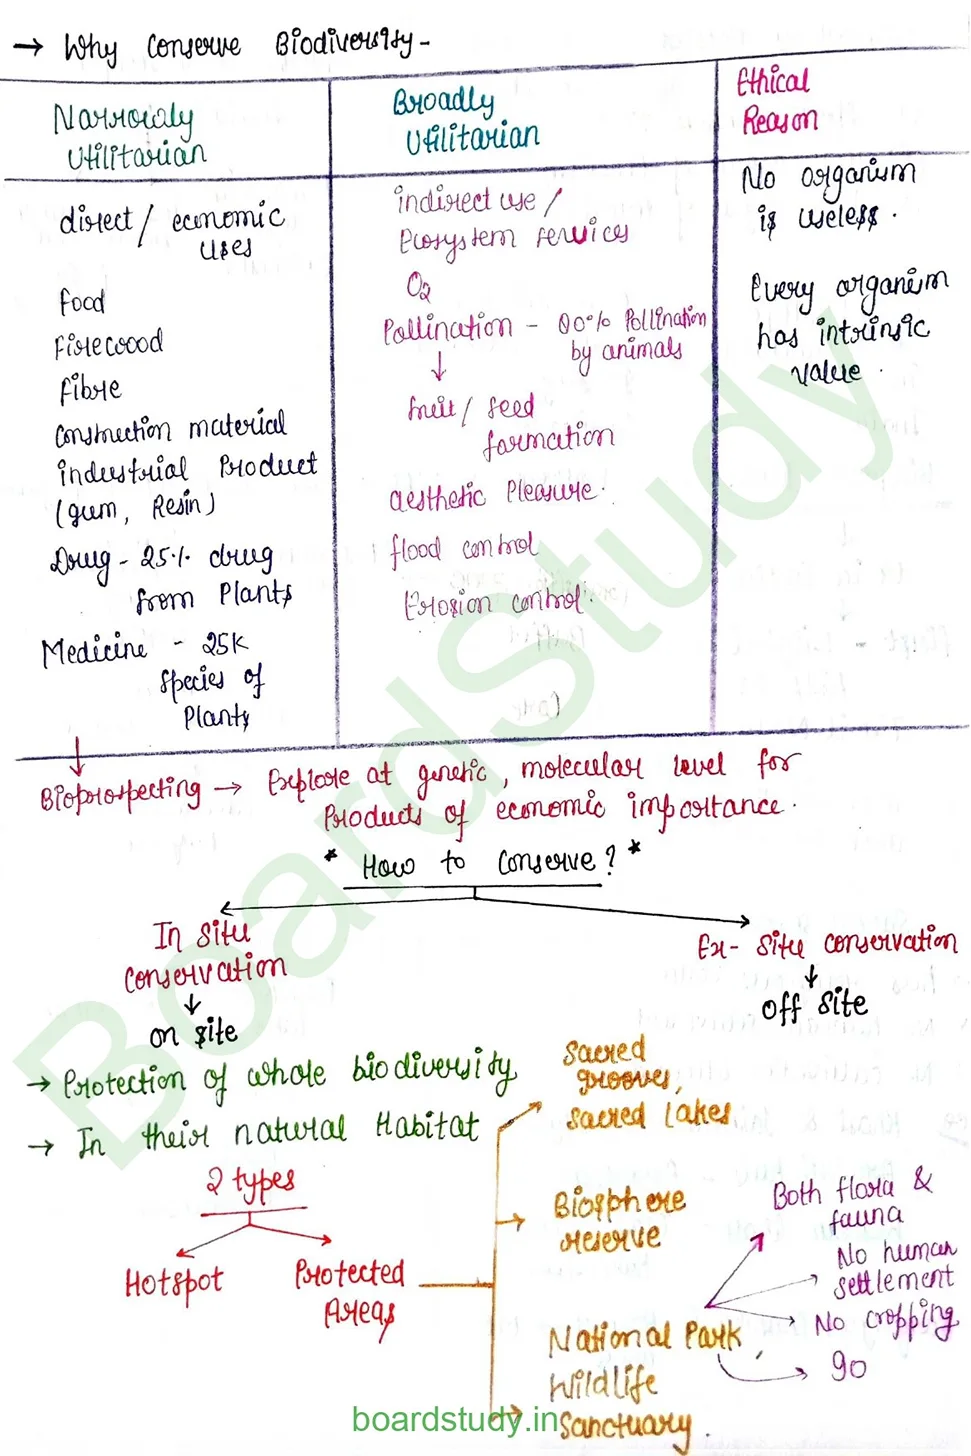 → Why Conserve Biodiversity -
Narrowly
Utilitarian
direct / economic
uses
food
Firewood
fibre
Construction material
industrial Product
(gum, Resin)
Drug - 25% drug
from Plants
Medicine - 25K
Species of
Plants
Broadly
Utilitarian
indirect use /
Ecosystem services
O2
Pollination - 90% Pollination
by animals
↓
fruit / seed
formation
aesthetic Pleasure.
flood control
Erosion control.
Ethical
Reason
No organism
is useless.
Every organism
has intrinsic
value.
Bioprospecting → Explore at genetic, molecular level for
Products of economic importance.
* How to Conserve? *
In Situ
Conservation
↓
on site
Ex- Situ conservation
↓
off site
→ Protection of whole biodiversity
→ In their natural Habitat
2 types
Hotspot
Protected
Areas
Sacred
grooves,
Sacred Lakes
Biosphere
reserve
National Park
Wildlife
Sanctuary.
Both flora &
fauna
No human
settlement
No cropping
90
BoardStudy
boardstudy.in